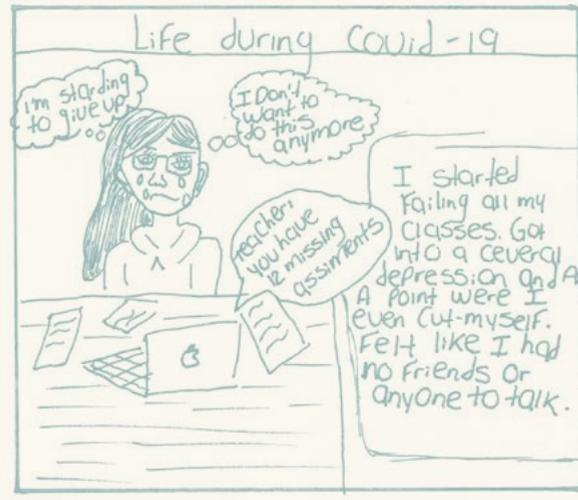 Life during Covid-19
I'm starding
to give up
I Don't
want to
do this
anymore
teacher:
you have
12 missing
assiments
I started
Failing all my
classes. Got
into a ceveral
depression and A
A point were I
even cut-myself.
Felt like I had
no friends or
anyone to talk.